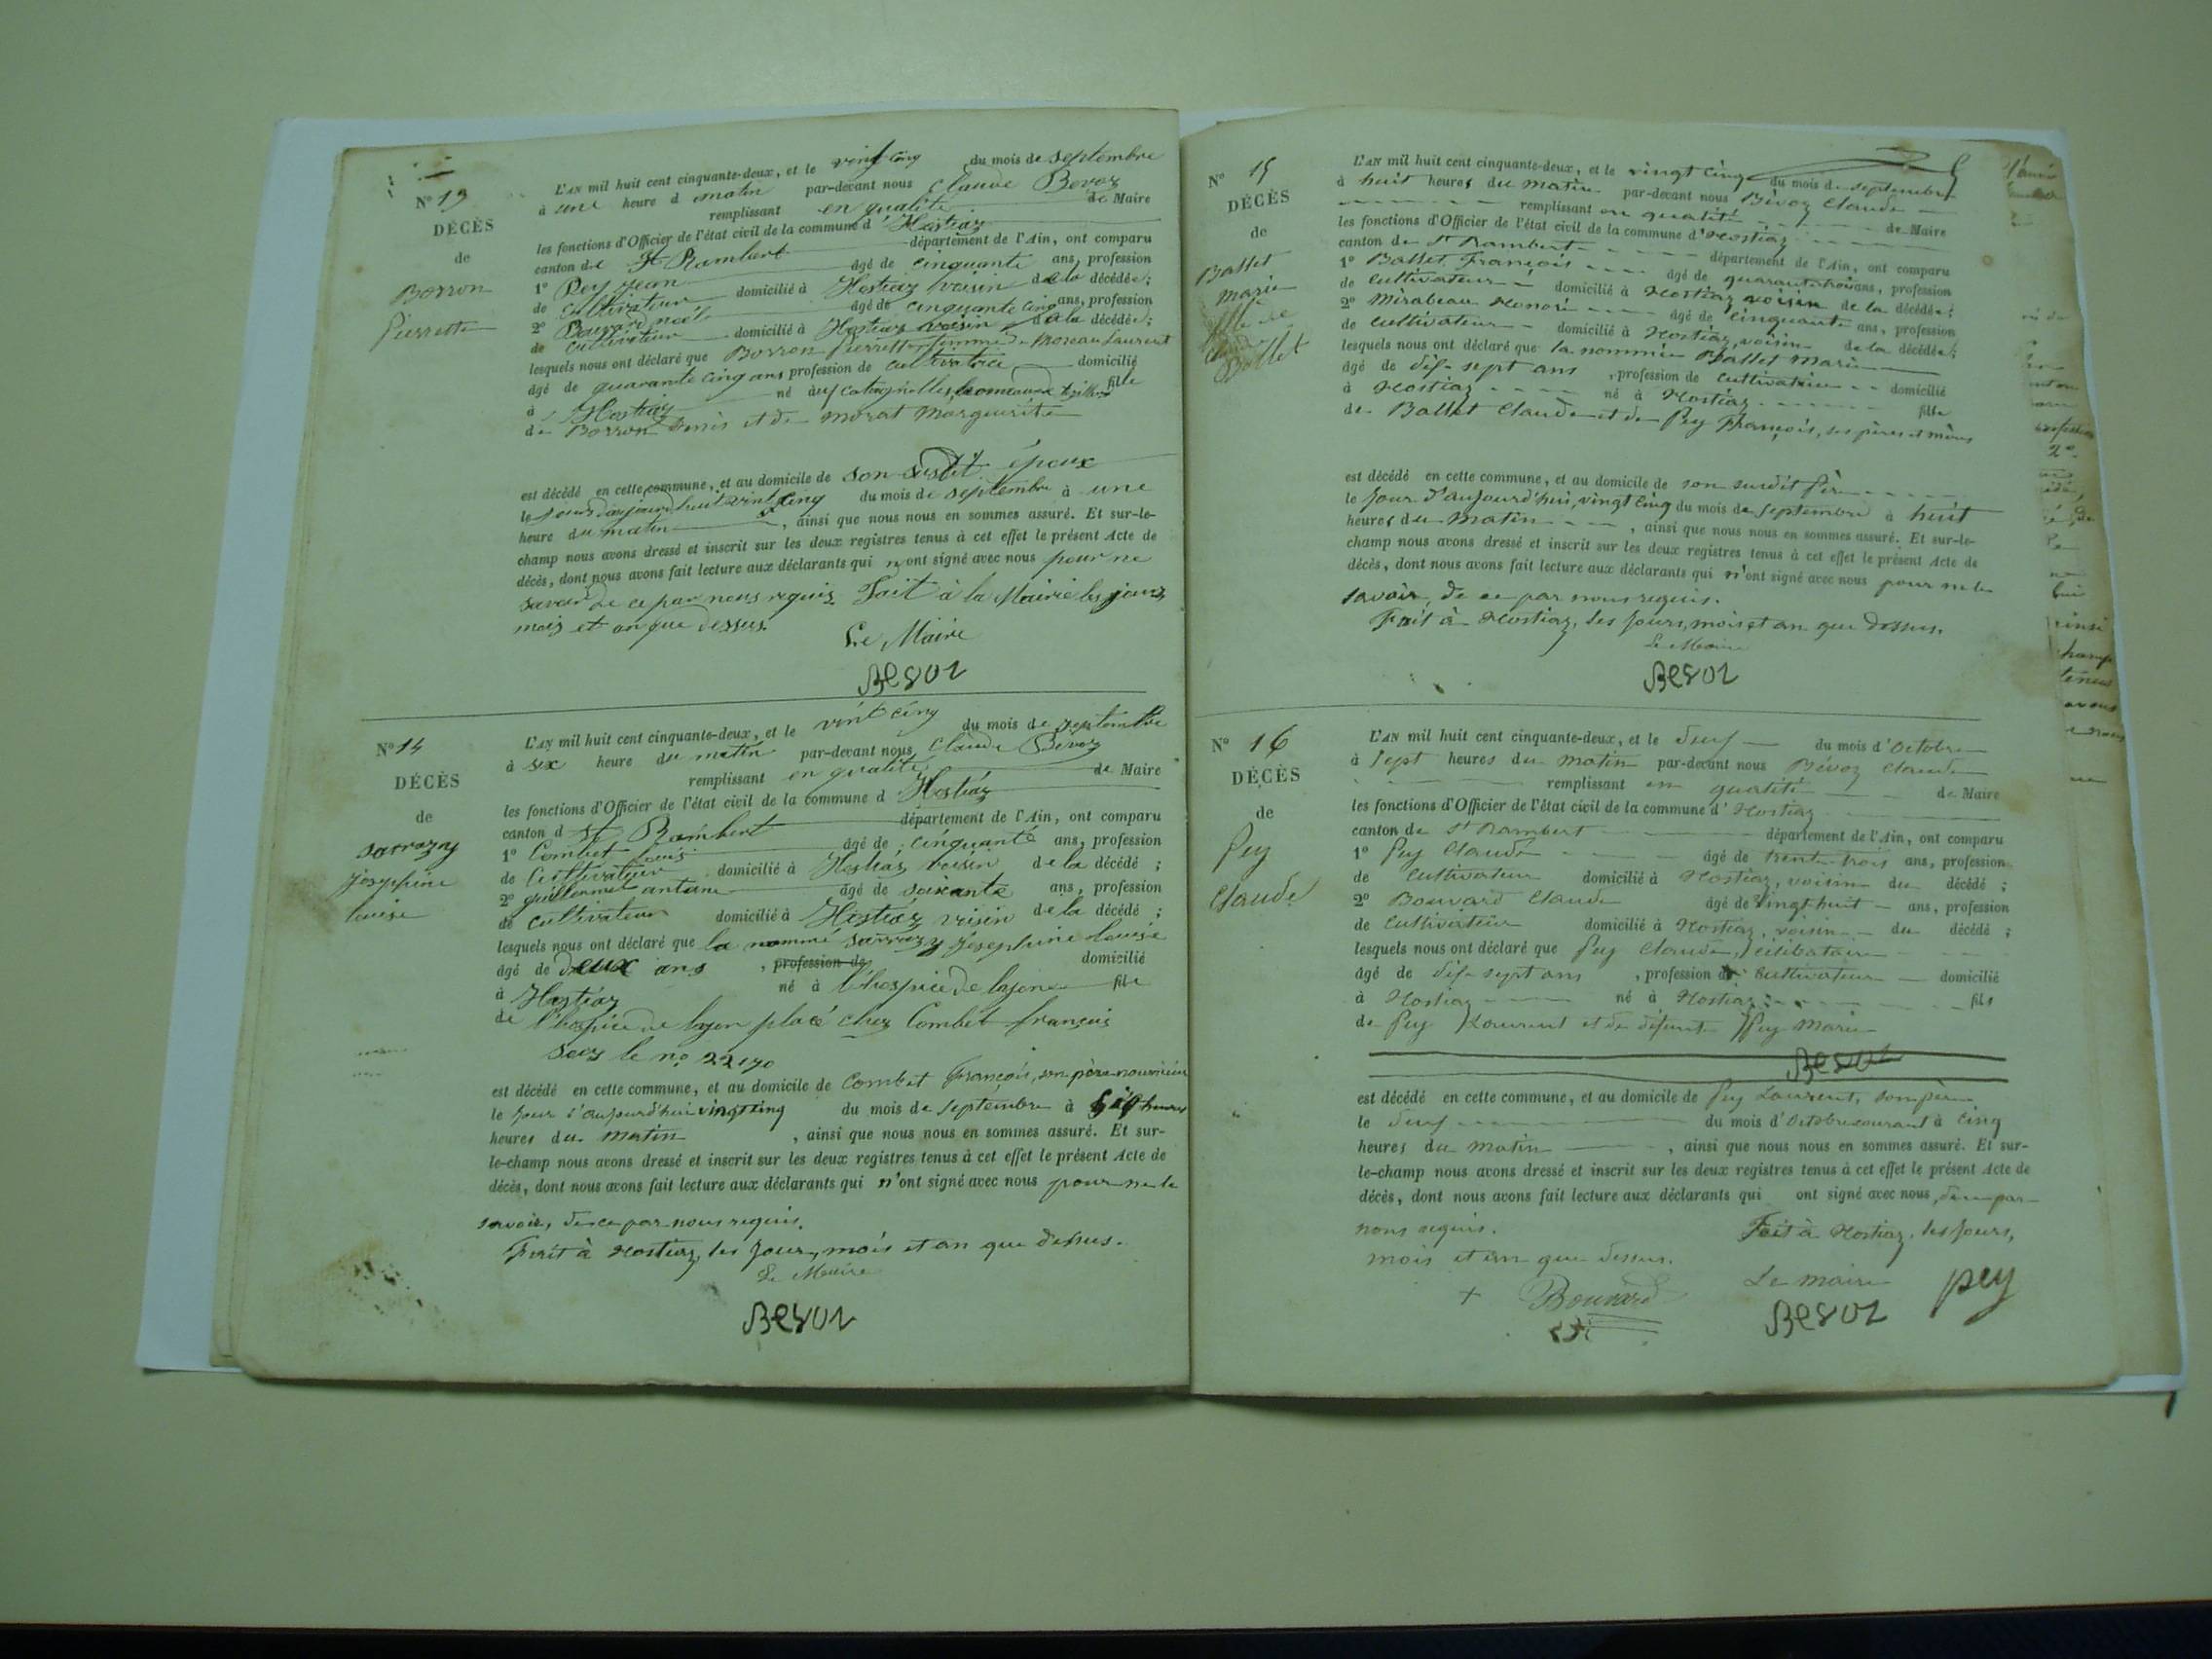 N° 13
DÉCÈS
de
Borron
Pierrette
L'AN mil huit cent cinquante-deux, et le vint cinq du mois de septembre
à une heure d matin par-devant nous Claude Bevoz
remplissant en qualité de Maire
les fonctions d'Officier de l'état civil de la commune d'Hostiaz
canton de St Rambert département de l'Ain, ont comparu
1° Pey Jean âgé de cinquante ans, profession
de cultivateur domicilié à Hostiaz voisin de la décédée;
2° Bouvard noël âgé de cinquante cinq ans, profession
de cultivateur domicilié à Hostiaz voisin de la décédée;
lesquels nous ont déclaré que Borron Pierrette femme de Moreau Laurent
âgé de quarante cinq ans profession de cultivatrice domicilié
à Hostiaz né à fille
de Borron Denis et de morat Marguerite
est décédé en cette commune, et au domicile de son susdit époux
le jours d'aujourd'huit vint cinq du mois de septembre à une
heure du matin, ainsi que nous nous en sommes assuré. Et sur-le-
champ nous avons dressé et inscrit sur les deux registres tenus à cet effet le présent Acte de
décès, dont nous avons fait lecture aux déclarants qui n'ont signé avec nous pour ne
savoir de ce par nous requis. Fait à la Mairie les jours,
mois et an que dessus.
Le Maire
Bevoz
N° 14
DÉCÈS
de
sarrazy
josephine
louise
L'AN mil huit cent cinquante-deux, et le vint cinq du mois de septembre
à six heure du matin par-devant nous Claude Bevoz
remplissant en qualité de Maire
les fonctions d'Officier de l'état civil de la commune d Hostiaz
canton d St Rambert département de l'Ain, ont comparu
1° Combet Louis âgé de cinquante ans, profession
de Cultivateur domicilié à Hostiaz voisin de la décédé;
2° guillermet antoine âgé de soixante ans, profession
de cultivateur domicilié à Hostiaz voisin de la décédé;
lesquels nous ont déclaré que la nommé sarrazy josephine louise
âgé de deux ans, profession de domicilié
à Hostiaz né à l'hospice de layon fille
de l'hospice de layon placé chez Combet françois
sous le n° 22170
est décédé en cette commune, et au domicile de Combet François, son père nourricier
le jour d'aujourd'hui vingt cinq du mois de septembre à heures
heures du matin, ainsi que nous nous en sommes assuré. Et sur-
le-champ nous avons dressé et inscrit sur les deux registres tenus à cet effet le présent Acte de
décès, dont nous avons fait lecture aux déclarants qui n'ont signé avec nous pour ne le
savoir, de ce par nous requis.
Fait à Hostiaz, les jour, mois et an que dessus.
Le Maire
Bevoz
N° 15
DÉCÈS
de
Ballet
Marie
fille de
Claude
Ballet
L'AN mil huit cent cinquante-deux, et le vingt cinq du mois de septembre
à huit heures du matin par-devant nous Bévoz Claude
remplissant en qualité de Maire
les fonctions d'Officier de l'état civil de la commune d'Hostiaz
canton de St Rambert département de l'Ain, ont comparu
1° Ballet François âgé de quarante trois ans, profession
de cultivateur domicilié à Hostiaz voisin de la décédée;
2° Mirabeau Honoré âgé de cinquante ans, profession
de cultivateur domicilié à Hostiaz, voisin de la décédée;
lesquels nous ont déclaré que la nommée Ballet Marie
âgé de dif-sept ans, profession de cultivatrice domicilié
à Hostiaz né à Hostiaz fille
de Ballet Claude et de Pey François, ses pères et mères
est décédé en cette commune, et au domicile de son surdit père
le jour d'aujourd'hui, vingt cinq du mois de septembre à huit
heures du matin, ainsi que nous nous en sommes assuré. Et sur-le-
champ nous avons dressé et inscrit sur les deux registres tenus à cet effet le présent Acte de
décès, dont nous avons fait lecture aux déclarants qui n'ont signé avec nous pour ne le
savoir, de ce par nous requis.
Fait à Hostiaz, les jours, mois et an que dessus.
Le Maire
Bevoz
N° 16
DÉCÈS
de
Pey
Claude
L'AN mil huit cent cinquante-deux, et le deux du mois d'Octobre
à sept heures du matin par-devant nous Bévoz Claude
remplissant en qualité de Maire
les fonctions d'Officier de l'état civil de la commune d'Hostiaz
canton de St Rambert département de l'Ain, ont comparu
1° Pey Claude âgé de trente-trois ans, profession
de cultivateur domicilié à Hostiaz, voisin du décédé;
2° Bouvard Claude âgé de vingt huit ans, profession
de Cultivateur domicilié à Hostiaz, voisin du décédé;
lesquels nous ont déclaré que Pey Claude, Célibataire
âgé de dif-sept ans, profession de cultivateur domicilié
à Hostiaz né à Hostiaz fils
de Pey Laurent et de défunte Pey Marie
Bevoz
est décédé en cette commune, et au domicile de Pey Laurent, son père
le deux du mois d'Octobre courant à cinq
heures du matin, ainsi que nous nous en sommes assuré. Et sur-
le-champ nous avons dressé et inscrit sur les deux registres tenus à cet effet le présent Acte de
décès, dont nous avons fait lecture aux déclarants qui ont signé avec nous, de ce par
nous requis. Fait à Hostiaz, les jours,
mois et an que dessus.
+ Bouvard Le maire pey
Bevoz